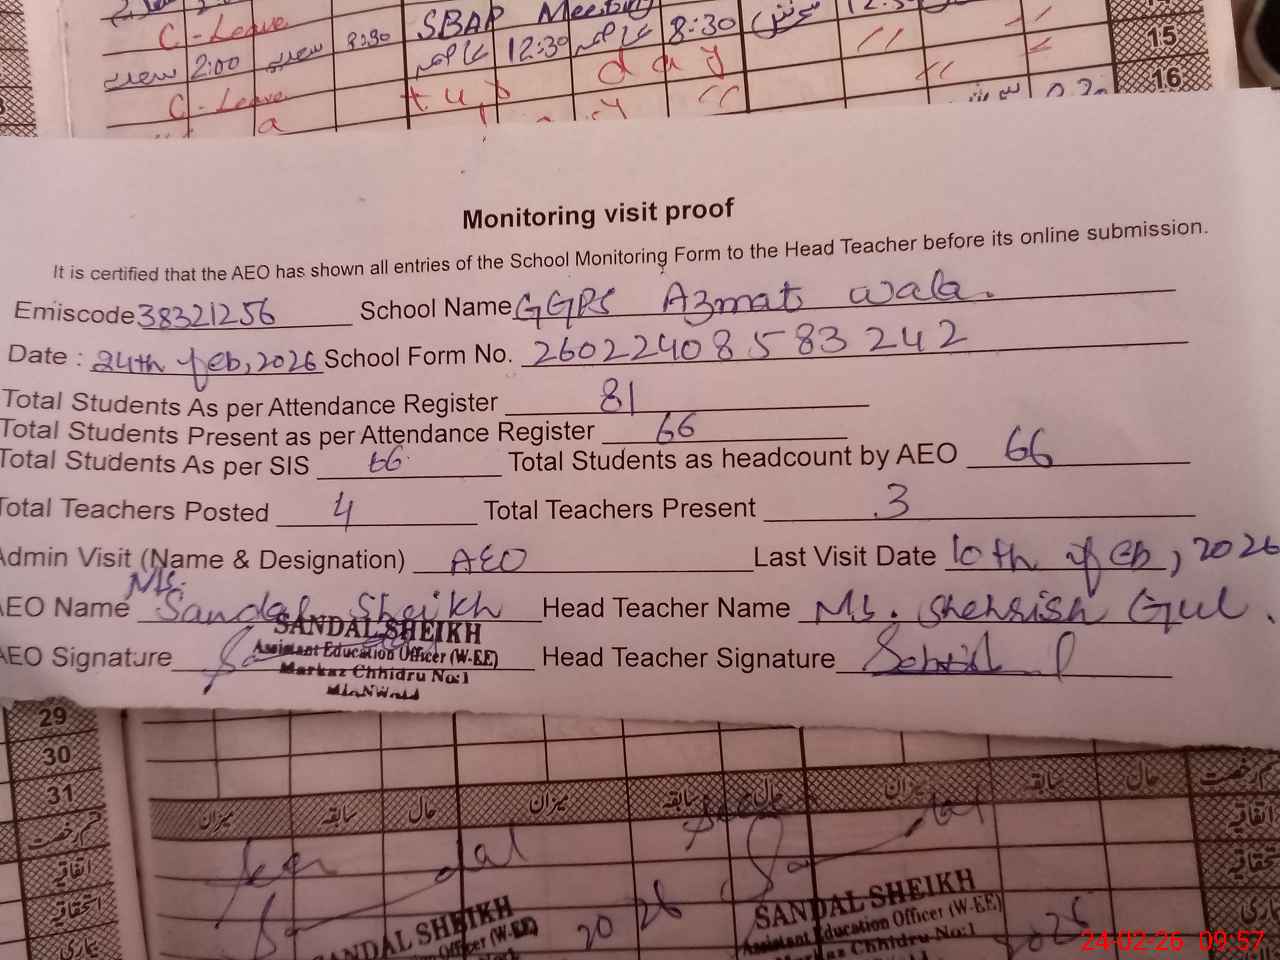 C-Leave SBAP Meeting
2:00 8:30 12:30 8:30 15
C-Leave t u, s d a y 16
Monitoring visit proof
It is certified that the AEO has shown all entries of the School Monitoring Form to the Head Teacher before its online submission.
Emiscode 38321256 School Name GGPS Azmat wala.
Date : 24th feb, 2026 School Form No. 260224085583242
Total Students As per Attendance Register 81
Total Students Present as per Attendance Register 66
Total Students As per SIS 66 Total Students as headcount by AEO 66
Total Teachers Posted 4 Total Teachers Present 3
Admin Visit (Name & Designation) AEO Last Visit Date 10th of feb, 2026
AEO Name Ms. Sandal Sheikh Head Teacher Name Ms. Shehrish Gul.
AEO Signature Head Teacher Signature
SANDAL SHEIKH
Assistant Education Officer (W-EE)
Markaz Chhidru No:1
MIANWALI
29
30
31
میزان سابقہ حال میزان سابقہ حال میزان سابقہ حال قسم رخصت
قسم رخصت
اتفاقیہ
استحقاقیہ
بیماری
SANDAL SHEIKH
2026
SANDAL SHEIKH
Assistant Education Officer (W-EE)
Markaz Chhidru No:1
24-02-26 09:57